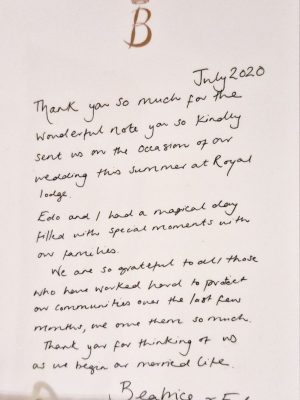 B
July 2020
Thank you so much for the
wonderful note you so kindly
sent us on the occasion of our
wedding this summer at Royal
lodge.
Edo and I had a magical day
filled with special moments with
our families.
We are so grateful to all those
who have worked hard to protect
our communities over the last few
months, we owe them so much.
Thank you for thinking of us
as we begin our married life.
Beatrice